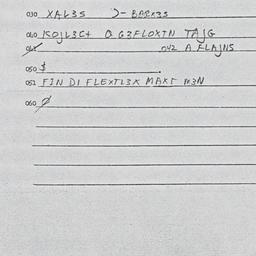 030 XAL3S )- BARX3S
040 KOJL3C+ Q G3FLOXTN TAJG
041 042 A FLAJNS
050 $ .
051 FIN DI FLEXTL3X MAKT M3N
060 Ø